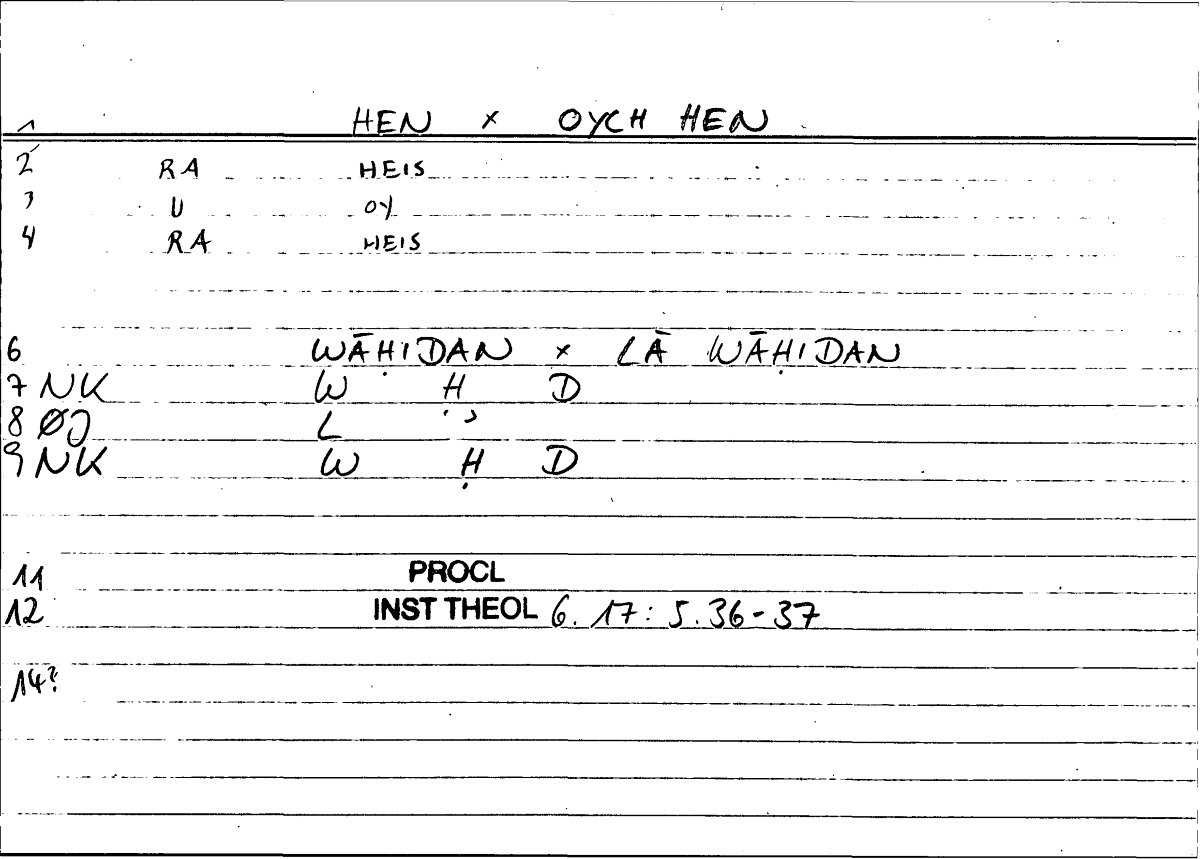 1 HEN × OYCH HEN
2 RA HEIS
3 U OY
4 RA HEIS
6 WĀḤIDAN × LĀ WĀḤIDAN
7 NK W Ḥ D
8 ØJ L ʾ
9 NK W Ḥ D
11 PROCL
12 INST THEOL 6. 17: 5.36-37
14?